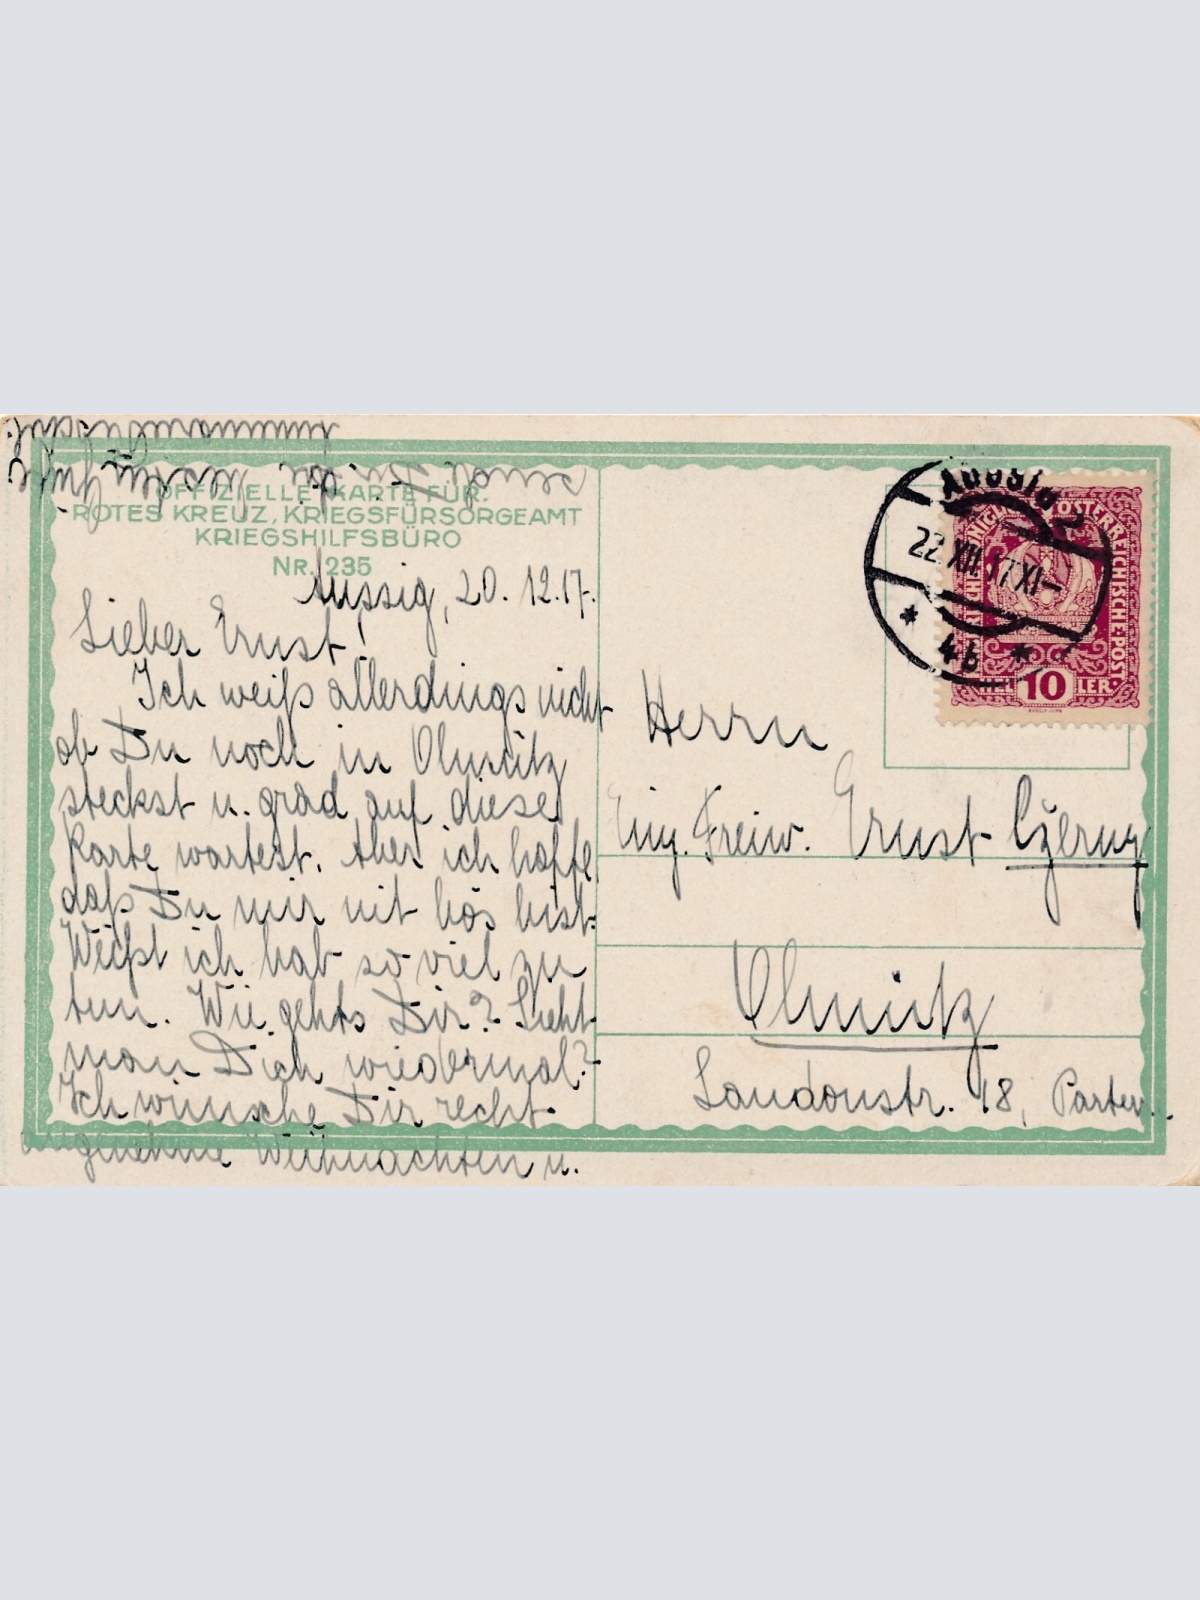 OFFIZIELLE KARTE FÜR:
ROTES KREUZ, KRIEGSFÜRSORGEAMT
KRIEGSHILFSBÜRO
Nr. 235
Aussig, 20. 12. 17.
Lieber Ernst!
Ich weiß allerdings nicht
ob Du noch in Olmütz
steckst u. grad auf diese
Karte wartest. Aber ich hoffe
daß Du mir nit bös bist.
Weißt ich hab so viel zu
tun. Wie gehts Dir? Sieht
man Dich wiedermal?
Ich wünsche Dir recht
angenehme Weihnachten u.
sende Dir die besten Grüße
AUSSIG 2
22.XII.17.XI–
* 4b *
KÖNIGL. ÖSTERREICHISCHE POST
10
Herrn
Einj. Freiw. Ernst Czerny
Olmütz
Laudonstr. 18, Parterre